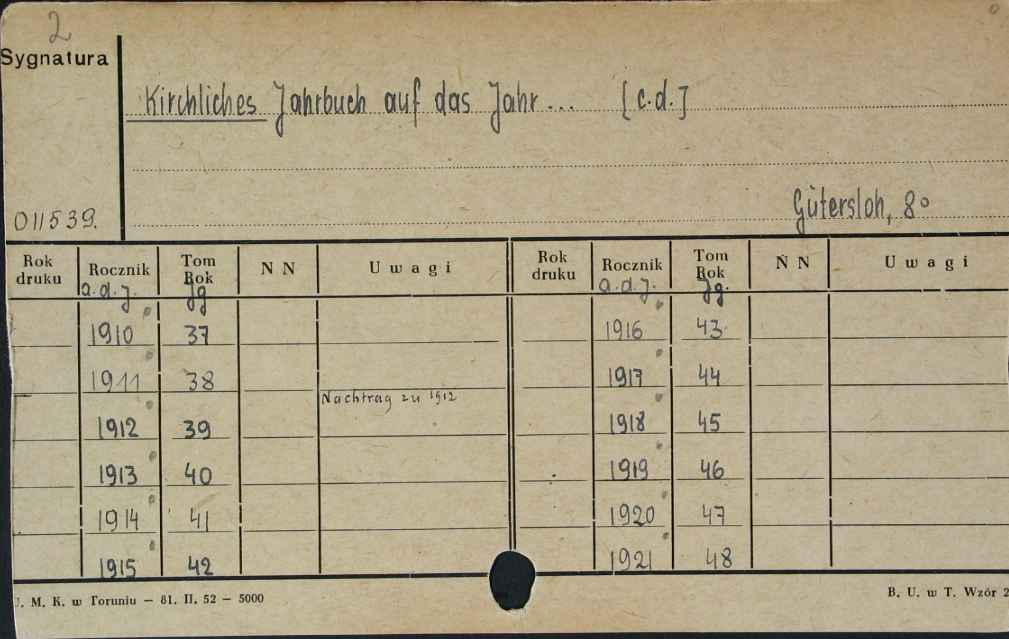 2
Sygnatura
Kirchliches Jahrbuch auf das Jahr... [c.d.]
011539.
Gütersloh, 8°
Rok druku Rocznik Tom Rok N N Uwagi Rok druku Rocznik Tom Rok N N Uwagi
a.d.J. Jg a.d.J. Jg.
1910 37 1916 43
1911 38 1917 44
Nachtrag zu 1912
1912 39 1918 45
1913 40 1919 46
1914 41 1920 47
1915 42 1921 48
U. M. K. w Toruniu — 81. II. 52 — 5000
B. U. w T. Wzór 2